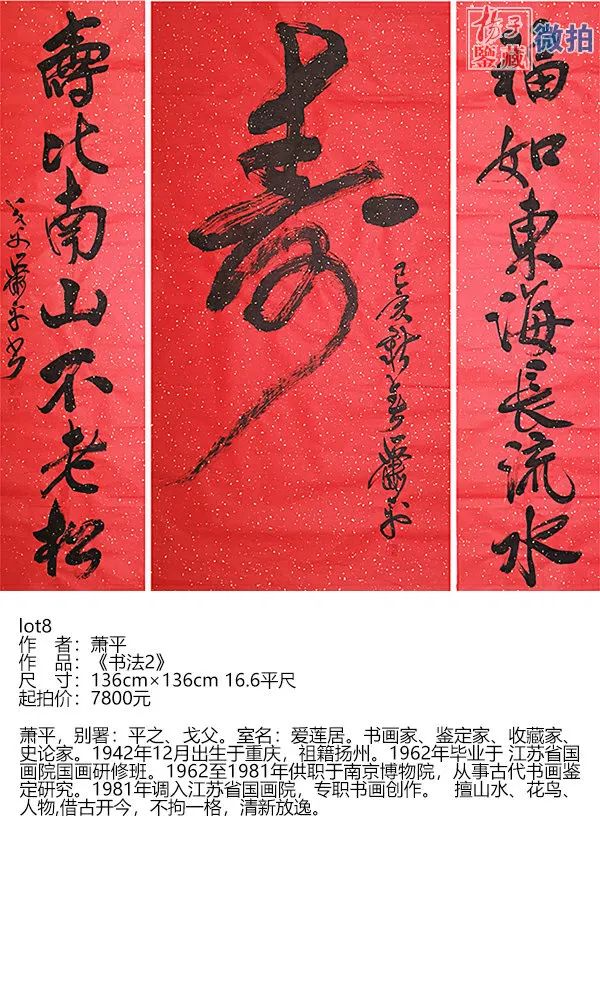 扬子
鉴藏
微拍
福如東海長流水
寿
己亥新春萧平
壽比南山不老松
萧平书
lot8
作 者：萧平
作 品：《书法2》
尺 寸：136cm×136cm 16.6平尺
起拍价：7800元
萧平，别署：平之、戈父。室名：爱莲居。书画家、鉴定家、收藏家、
史论家。1942年12月出生于重庆，祖籍扬州。1962年毕业于 江苏省国
画院国画研修班。1962至1981年供职于南京博物院，从事古代书画鉴
定研究。1981年调入江苏省国画院，专职书画创作。 擅山水、花鸟、
人物,借古开今，不拘一格，清新放逸。